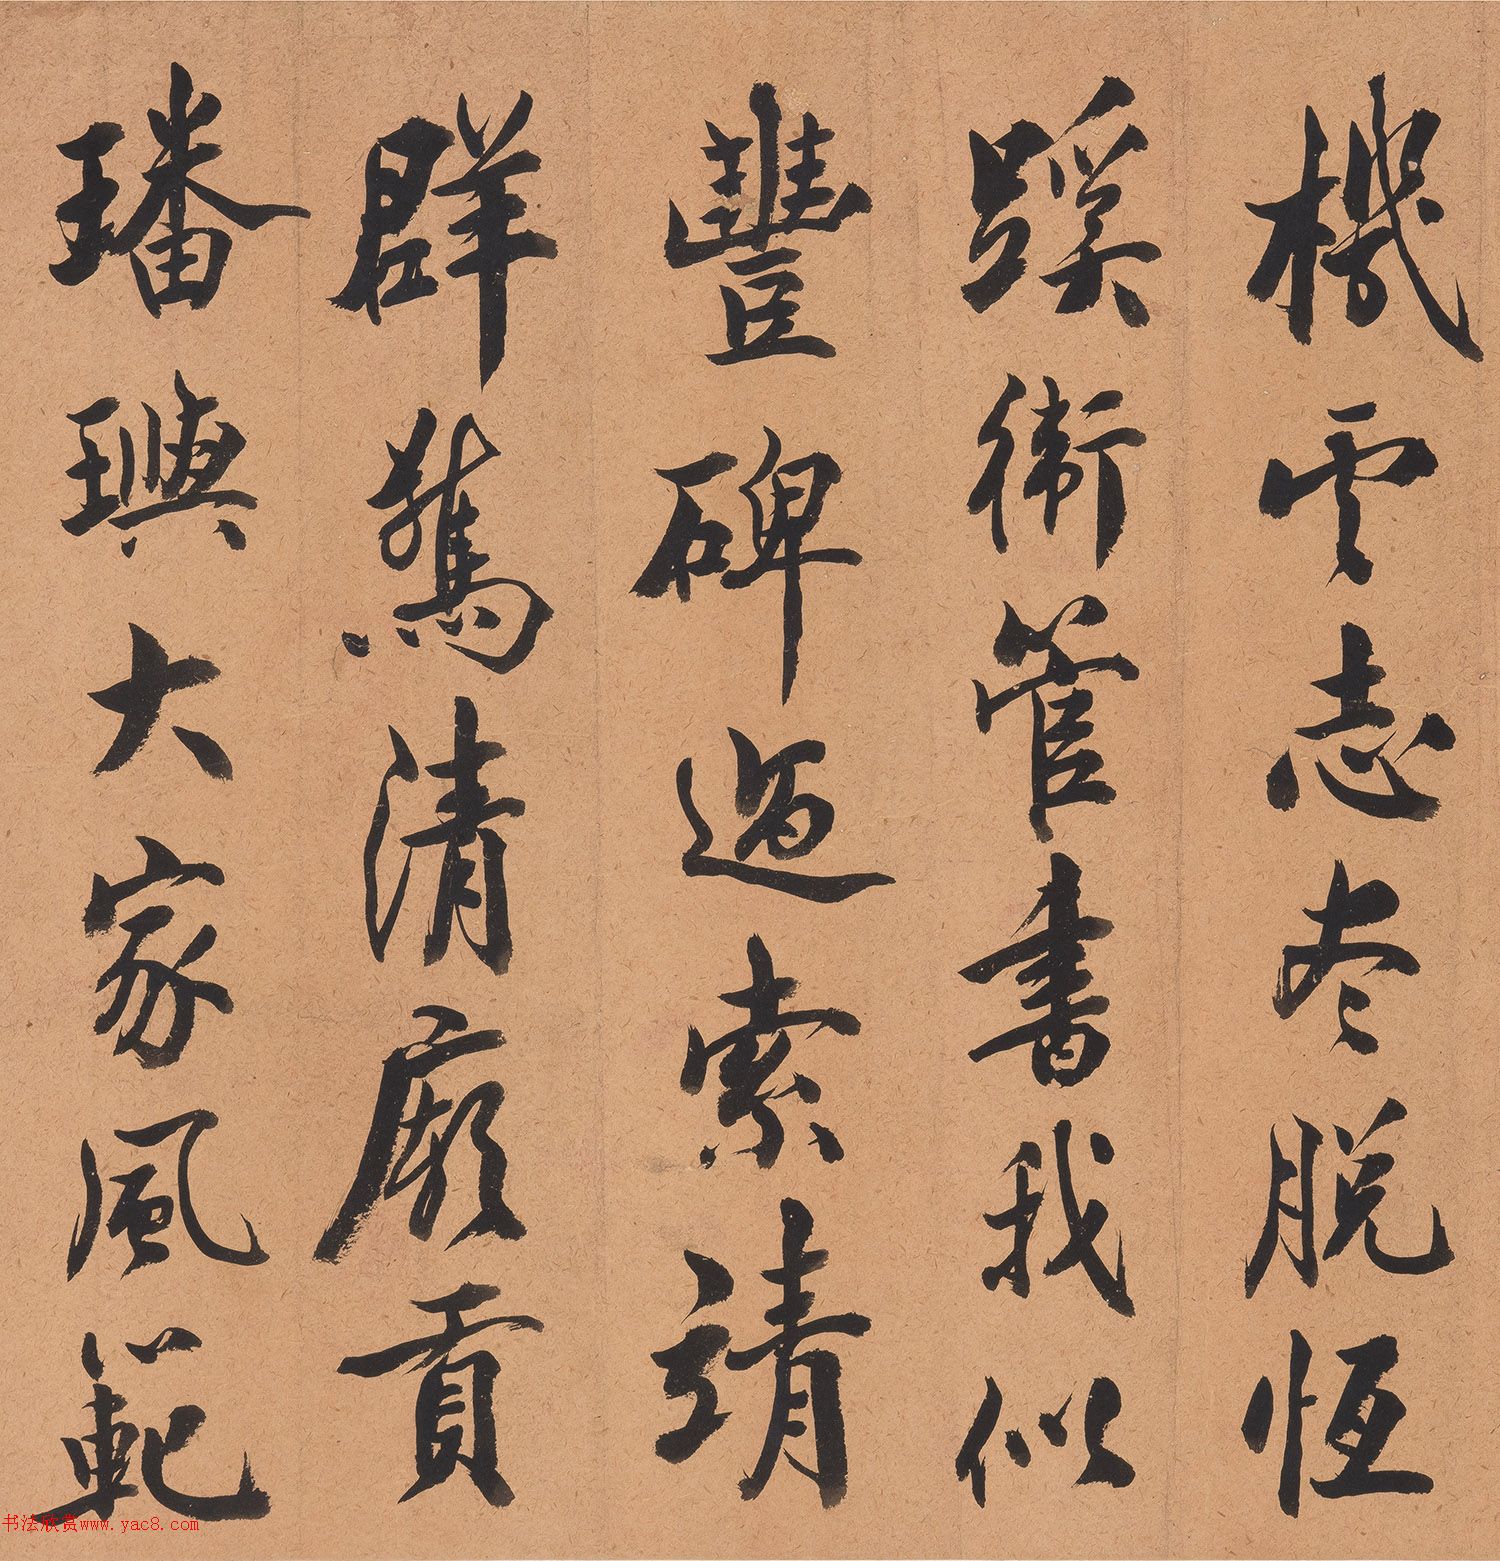 機雲志脫恒
蹊衛管書我似
豐碑過索靖
群驚清廟貢
璠璵大家風範
书法欣赏www.yac8.com